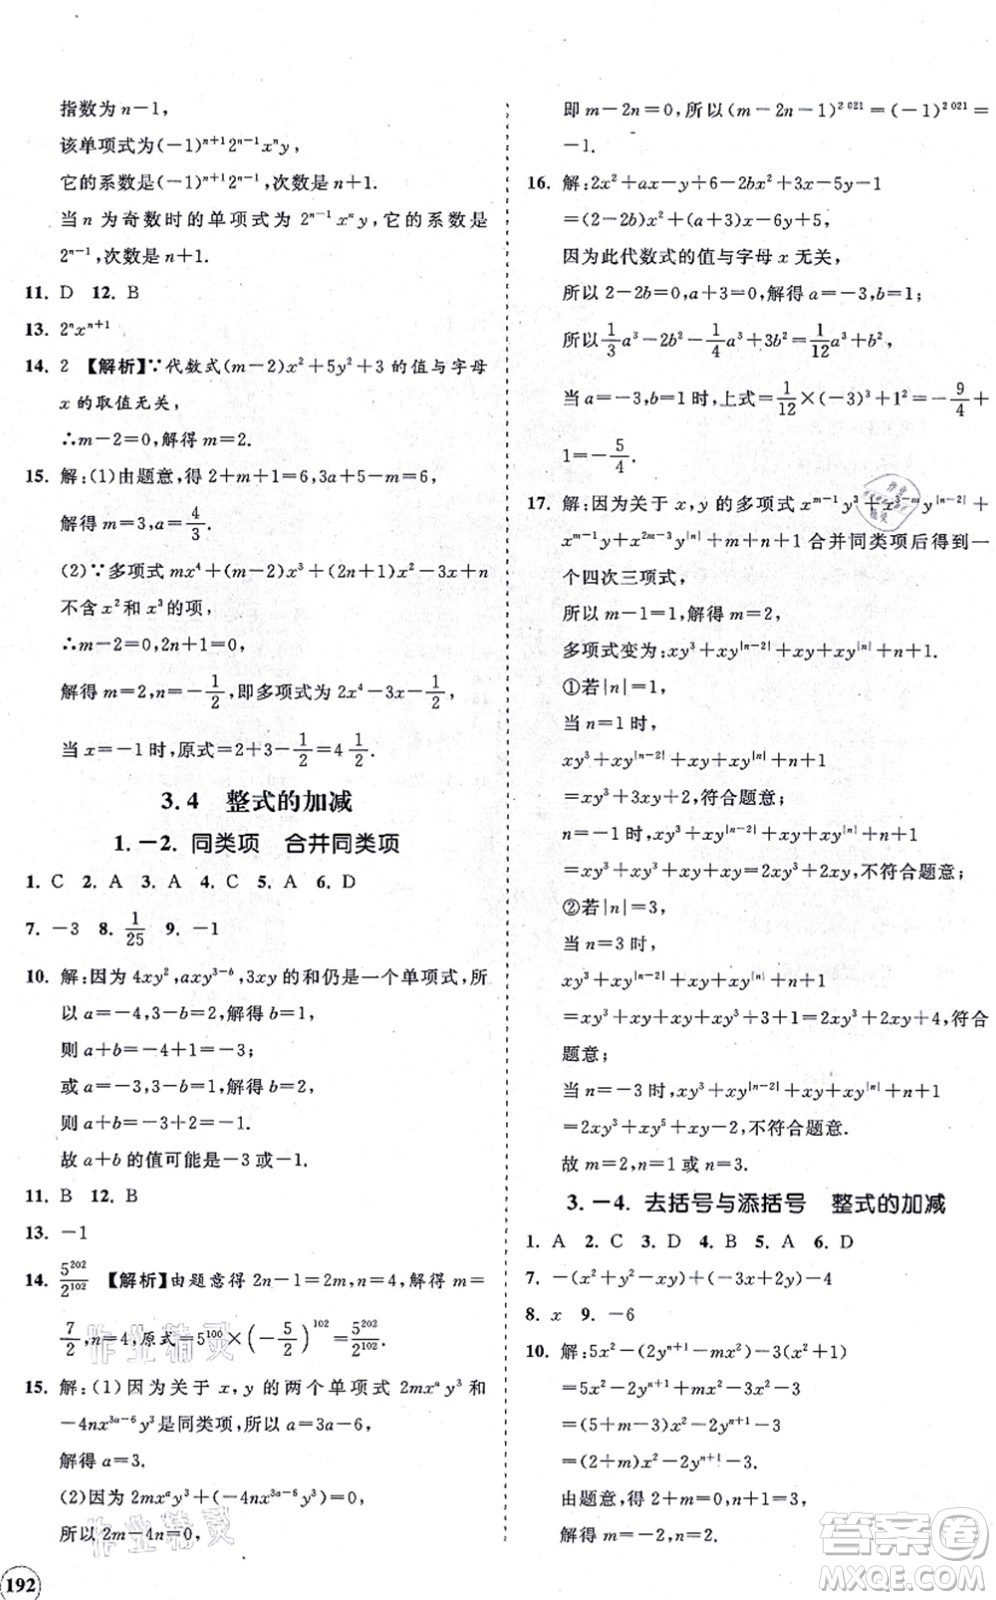 指数为 n－1,
该单项式为(－1)ⁿ⁺¹2ⁿ⁻¹xⁿy,
它的系数是(－1)ⁿ⁺¹2ⁿ⁻¹,次数是 n＋1.
当 n 为奇数时的单项式为 2ⁿ⁻¹xⁿy,它的系数是
2ⁿ⁻¹,次数是 n＋1.
11. D 12. B
13. 2ⁿxⁿ⁺¹
14. 2 【解析】∵代数式(m－2)x²＋5y²＋3 的值与字母
x 的取值无关,
∴m－2＝0,解得 m＝2.
15. 解:(1)由题意,得 2＋m＋1＝6,3a＋5－m＝6,
解得 m＝3,a＝4/3.
(2)∵多项式 mx⁴＋(m－2)x³＋(2n＋1)x²－3x＋n
不含 x² 和 x³ 的项,
∴m－2＝0,2n＋1＝0,
解得 m＝2,n＝－1/2,即多项式为 2x⁴－3x－1/2,
当 x＝－1 时,原式＝2＋3－1/2＝4 1/2.
3.4 整式的加减
1.－2. 同类项 合并同类项
1. C 2. A 3. A 4. C 5. A 6. D
7. －3 8. 1/25 9. －1
10. 解:因为 4xy²,axy³⁻ᵇ,3xy 的和仍是一个单项式,所
以 a＝－4,3－b＝2,解得 b＝1,
则 a＋b＝－4＋1＝－3;
或 a＝－3,3－b＝1,解得 b＝2,
则 a＋b＝－3＋2＝－1.
故 a＋b 的值可能是－3 或－1.
11. B 12. B
13. －1
14. 5²⁰²/2¹⁰² 【解析】由题意得 2n－1＝2m,n＝4,解得 m＝
7/2,n＝4,原式＝5¹⁰⁰×(－5/2)¹⁰²＝5²⁰²/2¹⁰².
15. 解:(1)因为关于 x,y 的两个单项式 2mxᵃy³ 和
－4nx³ᵃ⁻⁶y³是同类项,所以 a＝3a－6,
解得 a＝3.
(2)因为 2mxᵃy³＋(－4nx³ᵃ⁻⁶y³)＝0,
所以 2m－4n＝0,
192
即 m－2n＝0,所以(m－2n－1)²⁰²¹＝(－1)²⁰²¹＝
－1.
16. 解:2x²＋ax－y＋6－2bx²＋3x－5y－1
＝(2－2b)x²＋(a＋3)x－6y＋5,
因为此代数式的值与字母 x 无关,
所以 2－2b＝0,a＋3＝0,解得 a＝－3,b＝1;
所以1/3a³－2b²－1/4a³＋3b²＝1/12a³＋b²,
当 a＝－3,b＝1 时,上式＝1/12×(－3)³＋1²＝－9/4＋
1＝－5/4.
17. 解:因为关于 x,y 的多项式 xᵐ⁻¹y³＋x³⁻ᵐy|ⁿ⁻²|＋
xᵐ⁻¹y＋x²ᵐ⁻³y|ⁿ|＋m＋n－1 合并同类项后得到一
个四次三项式,
所以 m－1＝1,解得 m＝2,
多项式变为:xy³＋xy|ⁿ⁻²|＋xy＋xy|ⁿ|＋n＋1.
①若|n|＝1,
当 n＝1 时,
xy³＋xy|ⁿ⁻²|＋xy＋xy|ⁿ|＋n＋1
＝xy³＋3xy＋2,符合题意;
n＝－1 时,xy³＋xy|ⁿ⁻²|＋xy＋xy|ⁿ|＋n＋1
＝xy³＋xy³＋xy＋xy＝2xy³＋2xy,不符合题意;
②若|n|＝3,
当 n＝3 时,
xy³＋xy|ⁿ⁻²|＋xy＋xy|ⁿ|＋n＋1
＝xy³＋xy＋xy＋xy³＋3＋1＝2xy³＋2xy＋4,符合
题意;
当 n＝－3 时,xy³＋xy|ⁿ⁻²|＋xy＋xy|ⁿ|＋n＋1
＝2xy³＋xy⁵＋xy－2,不符合题意.
故 m＝2,n＝1 或 n＝3.
3.－4. 去括号与添括号 整式的加减
1. A 2. C 3. D 4. B 5. A 6. D
7. －(x²＋y²－xy)＋(－3x＋y)－4
8. x 9. －6
10. 解:5x²－(2yⁿ⁺¹－mx²)－3(x²＋1)
＝5x²－2yⁿ⁺¹＋mx²－3x²－3
＝(5＋m－3)x²－2yⁿ⁺¹－3
＝(2＋m)x²－2yⁿ⁺¹－3,
由题意,得 2＋m＋(－2)＋(－3)＝－1,
解得 m＝2.
作业精灵
作业精灵
答案卷
MXQE.COM